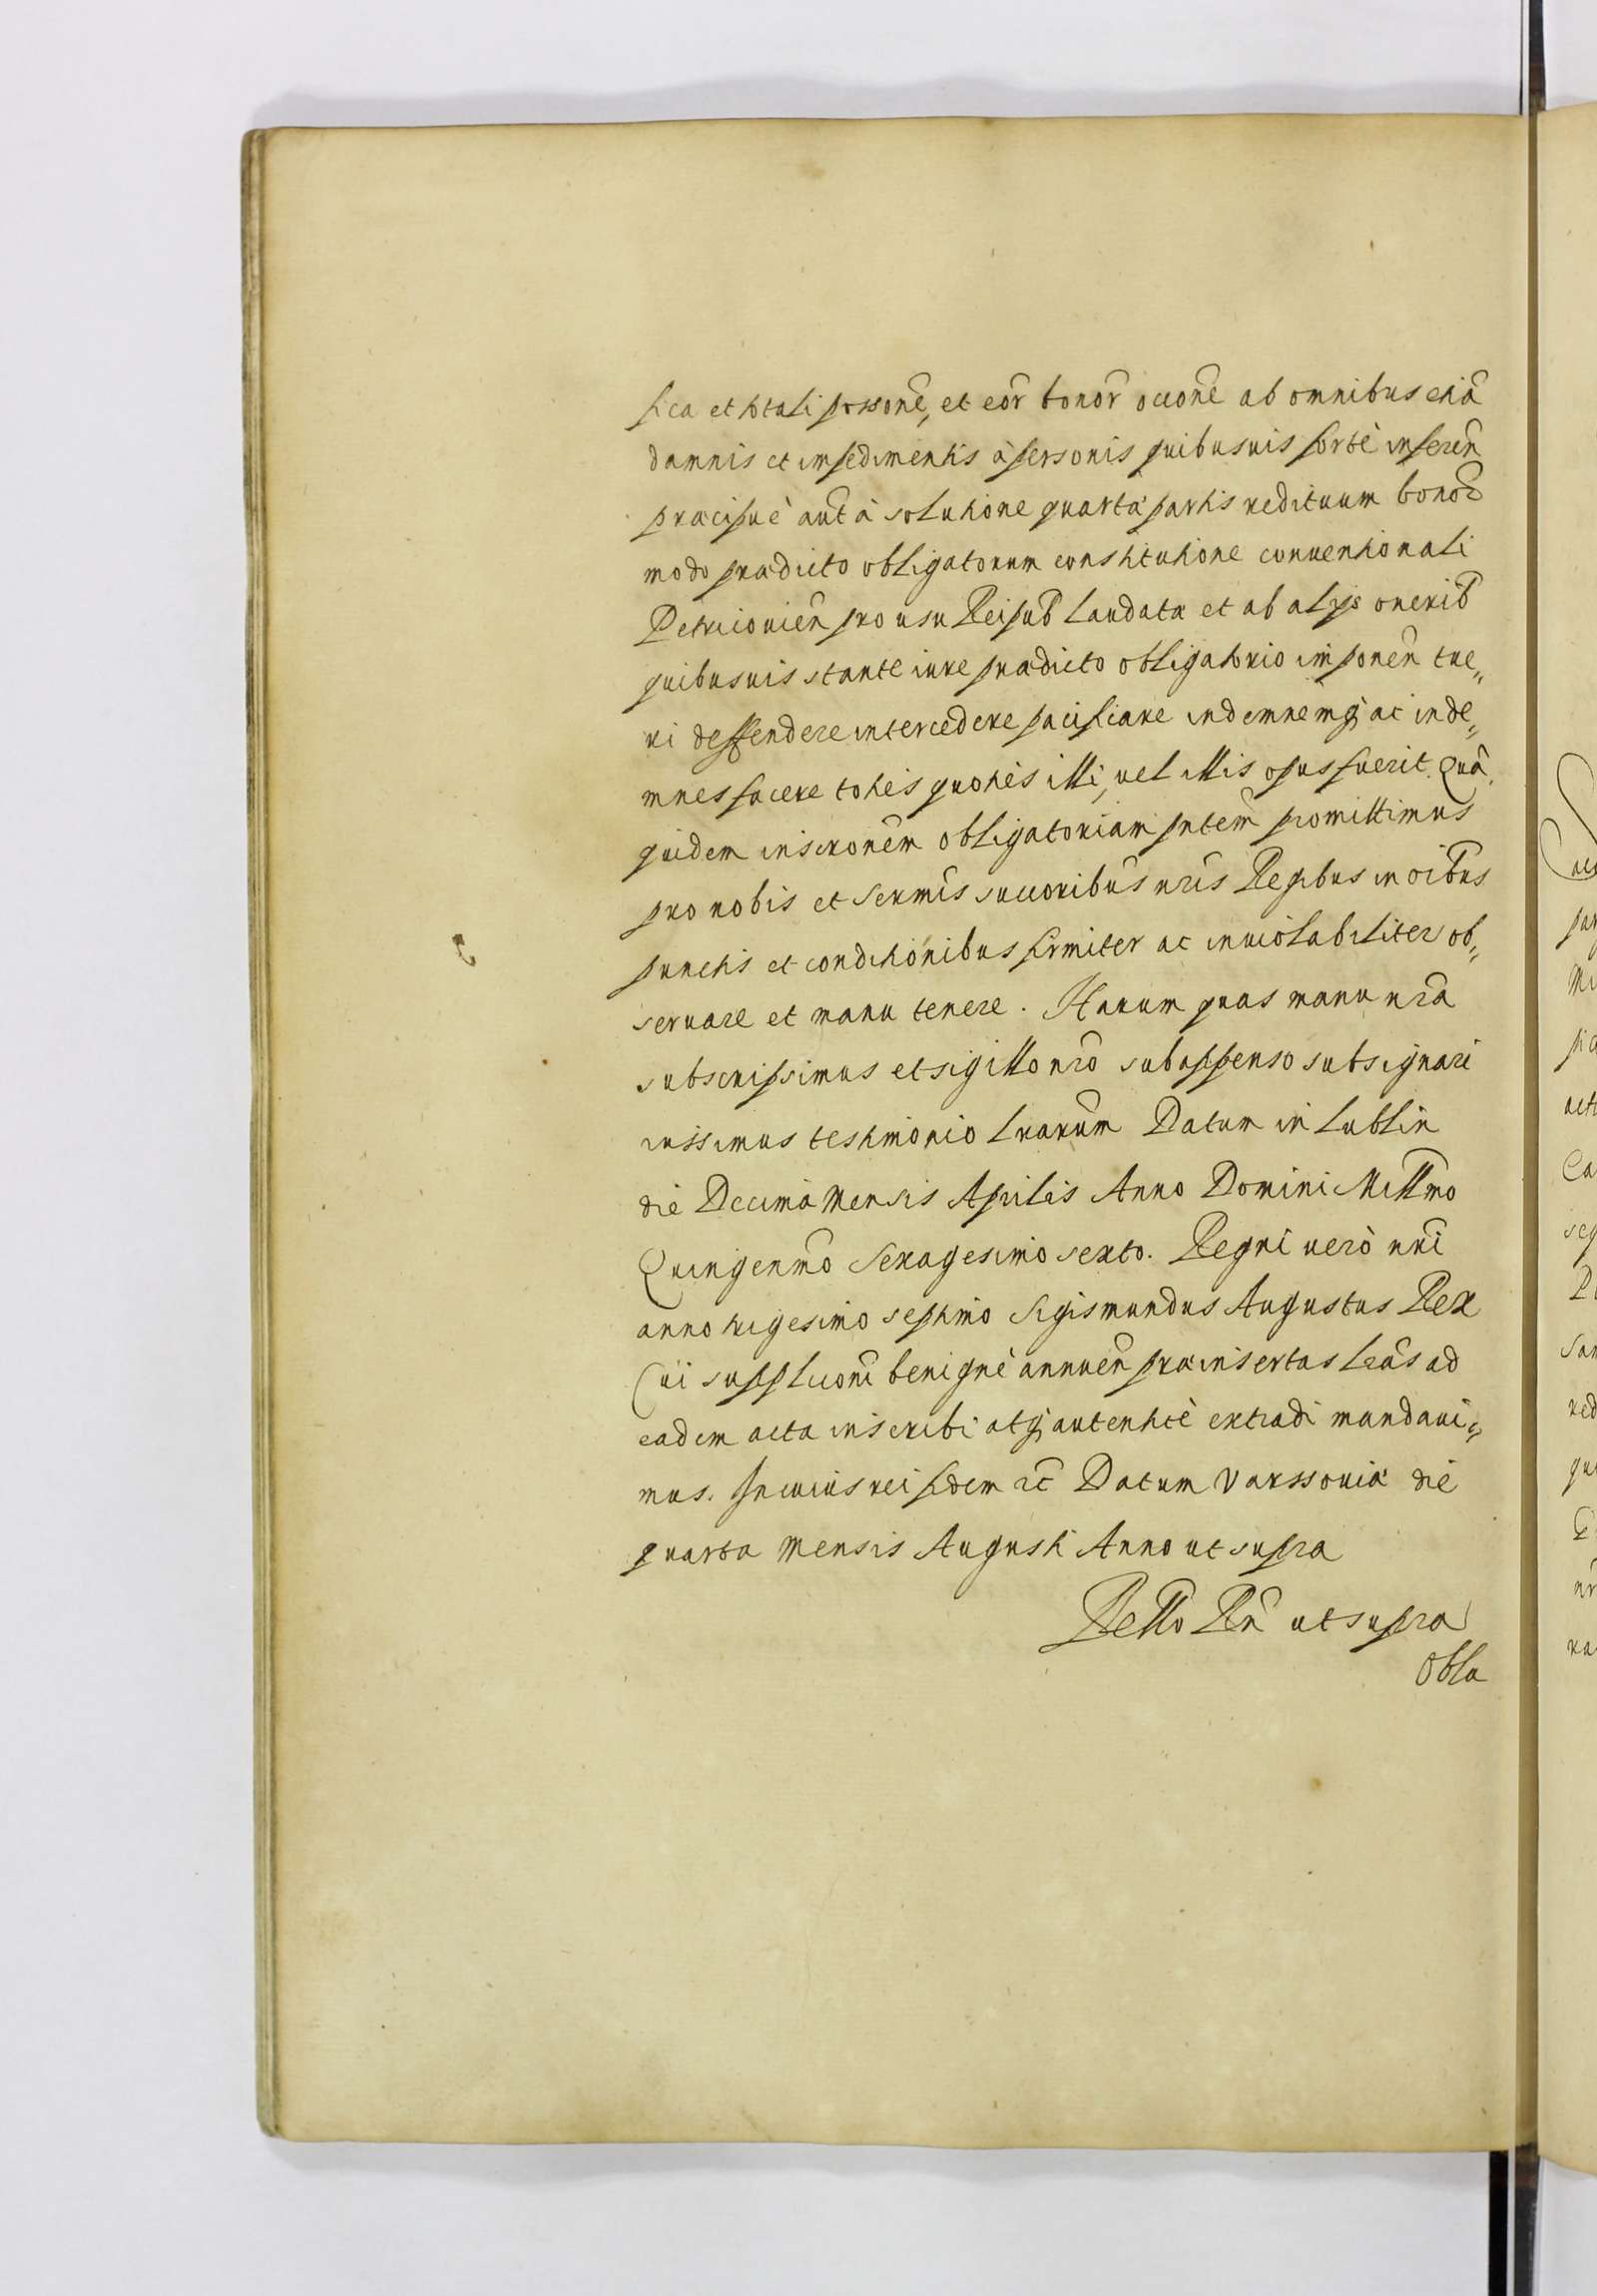 fica et totali possone, et eor bonor occone ab omnibus etia
damnis et impedimentis à personis quibusuis fortè inferen
præcipuè aut à solutione quartæ partis redituum bonor
modo prædicto obligatorum constitutione conuentionali
Petricouien pro usu Reipub laudata et ab alijs onerib
quibusuis stante iure prædicto obligatorio imponen tue„
ri deffendere intercedere pacificare indemnemq ac inde„
mnes facere toties quoties illi, uel illis opus fuerit. Quã
quidem inscronem obligatoriam pntem promittimus
pro nobis et Sermis succoribus nris Regibus in oibus
punctis et conditionibus firmiter ac inuiolabiliter ob„
seruare et manu tenere. Harum quas manu nra
subscripsimus et sigillo nro subappenso subsignari
iussimus testimonio lrarum Datum in Lublin
die Decima Mensis Aprilis Anno Domini Millmo
Quingenmo Sexagesimo sexto. Regni uerò nri
anno trigesimo septimo Sigismundus Augustus Rex
Cui suppliconi benignè annuen præinsertas lras ad
eadem acta inscribi atq autenticè extradi mandaui„
mus. In cuius rei fidem rc Datum Varssouiæ die
quarta Mensis Augusti Anno ut supra
Rello Rn ut supra
Obla